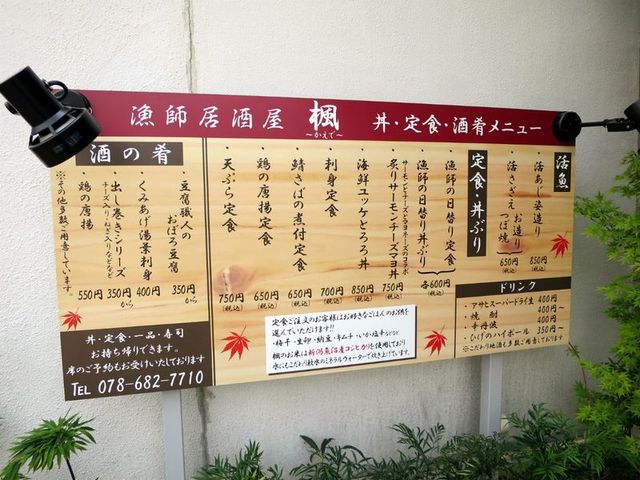 漁師居酒屋 楓 丼・定食・酒肴メニュー
～かえで～
活魚
・活あじ姿造り
・活さざえ お造り つぼ焼 650円(税込) 850円(税込)
ドリンク
・アサヒスーパードライ生 400円～
・焼 酎 400円～
・幸丹波 400円
・ひげのハイボール 350円～
※こだわり地酒も多数ご用意しております
定食・丼ぶり
・漁師の日替り定食
・漁師の日替り丼ぶり
各600円(税込)
サーモンとチーズとマヨネーズのコラボ
・炙りサーモンチーズマヨ丼 750円(税込)
・海鮮ユッケとろろ丼 850円(税込)
・刺身定食 700円(税込)
・鯖さばの煮付定食 650円(税込)
・鶏の唐揚定食 650円(税込)
・天ぷら定食 750円(税込)
定食ご注文のお客様はお好きなごはんのお供を
選んでいただけます!!
・梅干・生卵・納豆・キムチ・いか塩辛などなど
楓のお米は新潟魚沼産コシヒカリを使用しており
水にもこだわり軟水のミネラルウォーターで炊き上げています。
酒の肴
・豆腐職人の
おぼろ豆腐 350円から
・くみあげ湯葉刺身 400円
・出し巻きシリーズ 350円から
チーズ入り・ねぎ入りなどなど
・鶏の唐揚 550円
※その他多数ご用意しています。
丼・定食・一品・寿司
お持ち帰りできます。
席のご予約もお受けいたしております
TEL 078-682-7710